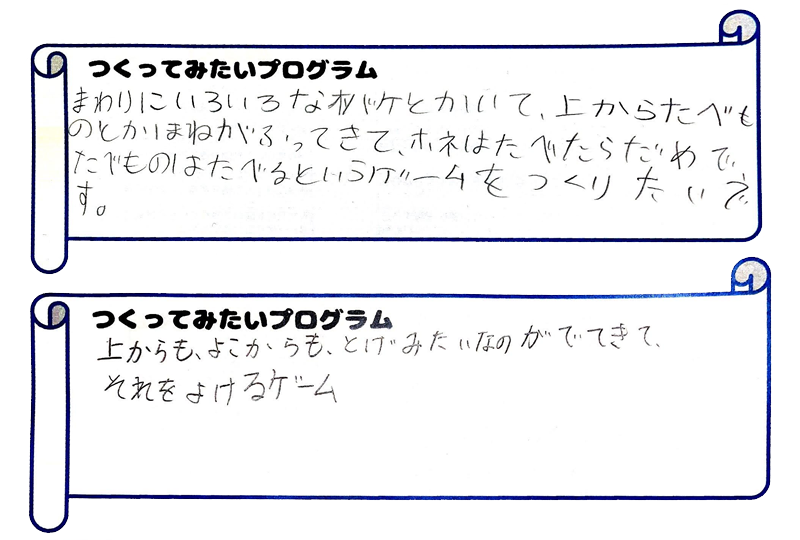 つくってみたいプログラム
まわりにいろいろなオバケとかいて、上からたべも
のとかほねがふってきて、ホネはたべたらだめで
たべものはたべるというゲームをつくりたいで
す。
つくってみたいプログラム
上からも、よこからも、とげみたいなのがでてきて、
それをよけるゲーム